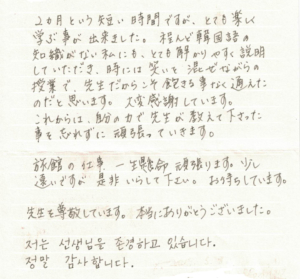 2ヵ月という短い時間ですが、とても楽しく
学ぶ事が出来ました。殆んど韓国語の
知識がない私にも、とても解かりやすく説明
していただき、時には笑いを混ぜながらの
授業で、先生だからこそ飽きる事なく通えた
のだと思います。大変感謝しています。
これからは、自分の力で先生が教えて下さった
事を忘れずに頑張っていきます。
旅館の仕事 一生懸命 頑張ります。少し
遠いですが 是非 いらして下さい。お待ちしています。
先生を尊敬しています。本当にありがとうございました。
저는 선생님을 존경하고 있습니다.
정말 감사합니다.